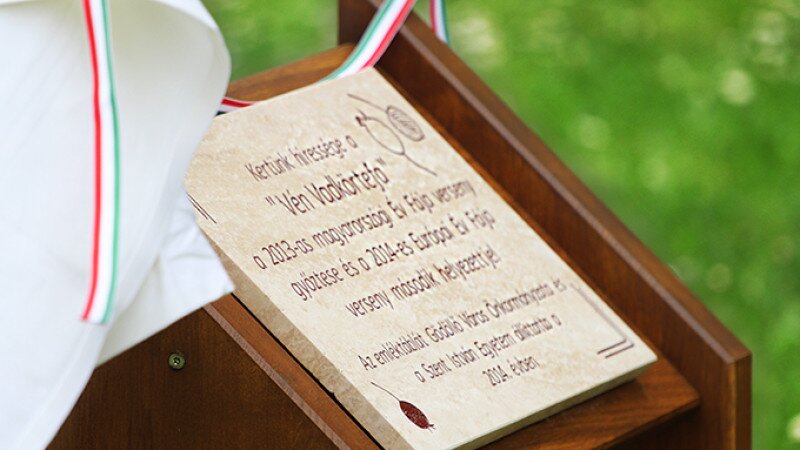 Kertünk híressége a
"Vén Vadkörtefa"
a 2013-as magyarországi Év Fája verseny
győztese és a 2014-es Európai Év Fája
verseny második helyezettje!
Az emléktáblát Gödöllő Város Önkormányzata és
a Szent István Egyetem állíttatta
2014. évben